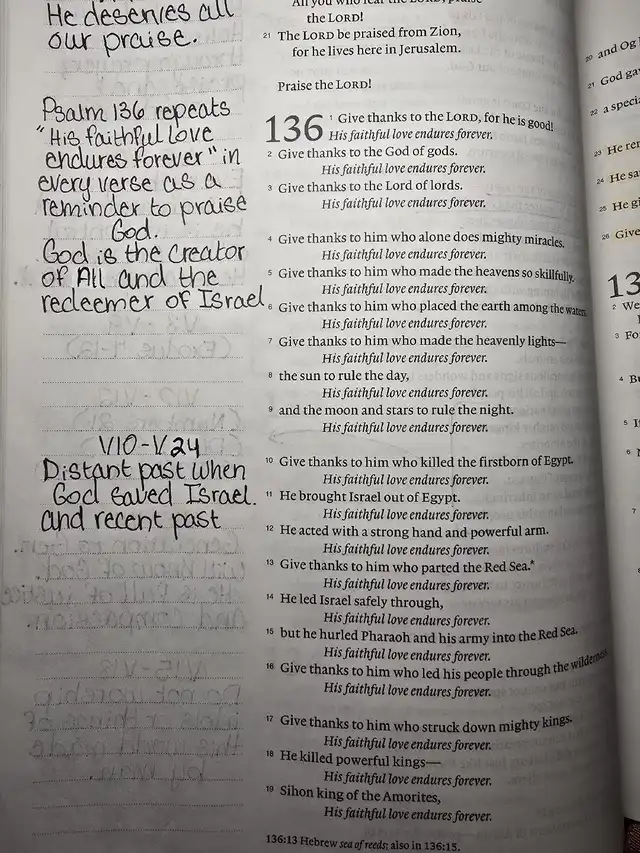 He deserves all
our praise.
Psalm 136 repeats
"His faithful love
endures forever" in
every verse as a
reminder to praise
God.
God is the Creator
of All and the
redeemer of Israel
V10-V24
Distant past when
God saved Israel.
and recent past
All you who fear the LORD, praise
the LORD!
21 The LORD be praised from Zion,
for he lives here in Jerusalem.
Praise the LORD!
136 1 Give thanks to the LORD, for he is good!
His faithful love endures forever.
2 Give thanks to the God of gods.
His faithful love endures forever.
3 Give thanks to the Lord of lords.
His faithful love endures forever.
4 Give thanks to him who alone does mighty miracles.
His faithful love endures forever.
5 Give thanks to him who made the heavens so skillfully.
His faithful love endures forever.
6 Give thanks to him who placed the earth among the waters.
His faithful love endures forever.
7 Give thanks to him who made the heavenly lights—
His faithful love endures forever.
8 the sun to rule the day,
His faithful love endures forever.
9 and the moon and stars to rule the night.
His faithful love endures forever.
10 Give thanks to him who killed the firstborn of Egypt.
His faithful love endures forever.
11 He brought Israel out of Egypt.
His faithful love endures forever.
12 He acted with a strong hand and powerful arm.
His faithful love endures forever.
13 Give thanks to him who parted the Red Sea.*
His faithful love endures forever.
14 He led Israel safely through,
His faithful love endures forever.
15 but he hurled Pharaoh and his army into the Red Sea.
His faithful love endures forever.
16 Give thanks to him who led his people through the wilderness.
His faithful love endures forever.
17 Give thanks to him who struck down mighty kings.
His faithful love endures forever.
18 He killed powerful kings—
His faithful love endures forever.
19 Sihon king of the Amorites,
His faithful love endures forever.
136:13 Hebrew sea of reeds; also in 136:15.
20 and Og
21 God ga
22 a specia
23 He re
24 He sa
25 He gi
26 Give
13
2 We
3 Fo
4 Bu
5 I
6
7